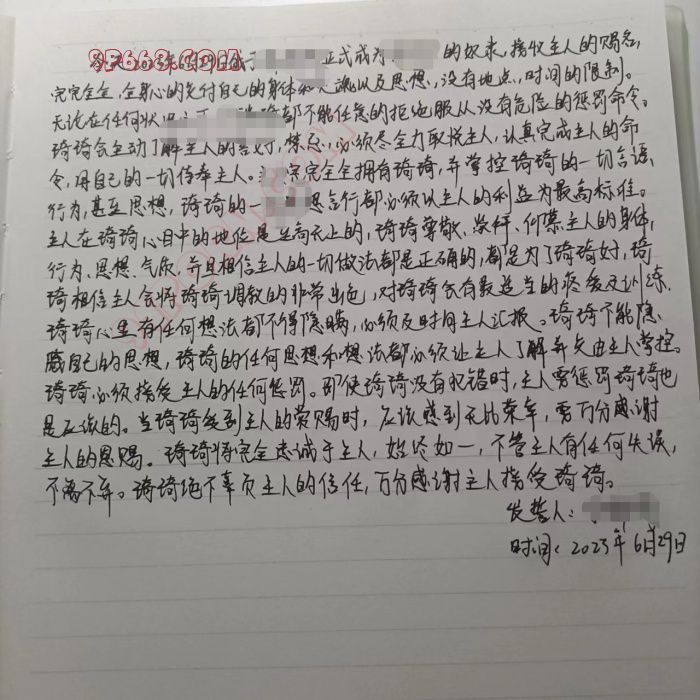 SP668.COM
今天2023年6月29日我于 正式成为 的奴隶，接收主人的赐名，
完完全全，全身心的交付自己的身体和灵魂以及思想，没有地点，时间的限制。
无论在任何状况 琦琦都不能任意的拒绝服从没有危险的惩罚命令。
琦琦会主动了解主人的喜好，禁忌，必须尽全力取悦主人，认真完成主人的命
令，用自己的一切侍奉主人。 完完全全拥有琦琦，并掌控琦琦的一切言语，
行为，甚至思想，琦琦的一 思言行都必须以主人的利益为最高标准。
主人在琦琦心目中的地位是至高无上的，琦琦尊敬、崇拜、仰慕主人的身体，
行为、思想、气质，并且相信主人的一切做法都是正确的，都是为了琦琦好，琦
琦相信主人会将琦琦调教的非常出色，对琦琦会有最适当的疼爱及训练，
琦琦心里有任何想法都不得隐瞒，必须及时向主人汇报。琦琦不能隐
藏自己的思想，琦琦的任何思想和想法都必须让主人了解并交由主人掌控。
琦琦必须接受主人的任何惩罚。即使琦琦没有犯错时，主人要惩罚琦琦也
是应该的。当琦琦受到主人的赏赐时，应该感到无比荣幸，要万分感谢
主人的恩赐。琦琦将完全忠诚于主人，始终如一，不管主人有任何失误，
不离不弃。琦琦绝不辜负主人的信任，万分感谢主人接受琦琦。
发誓人：
时间：2023年6月29日